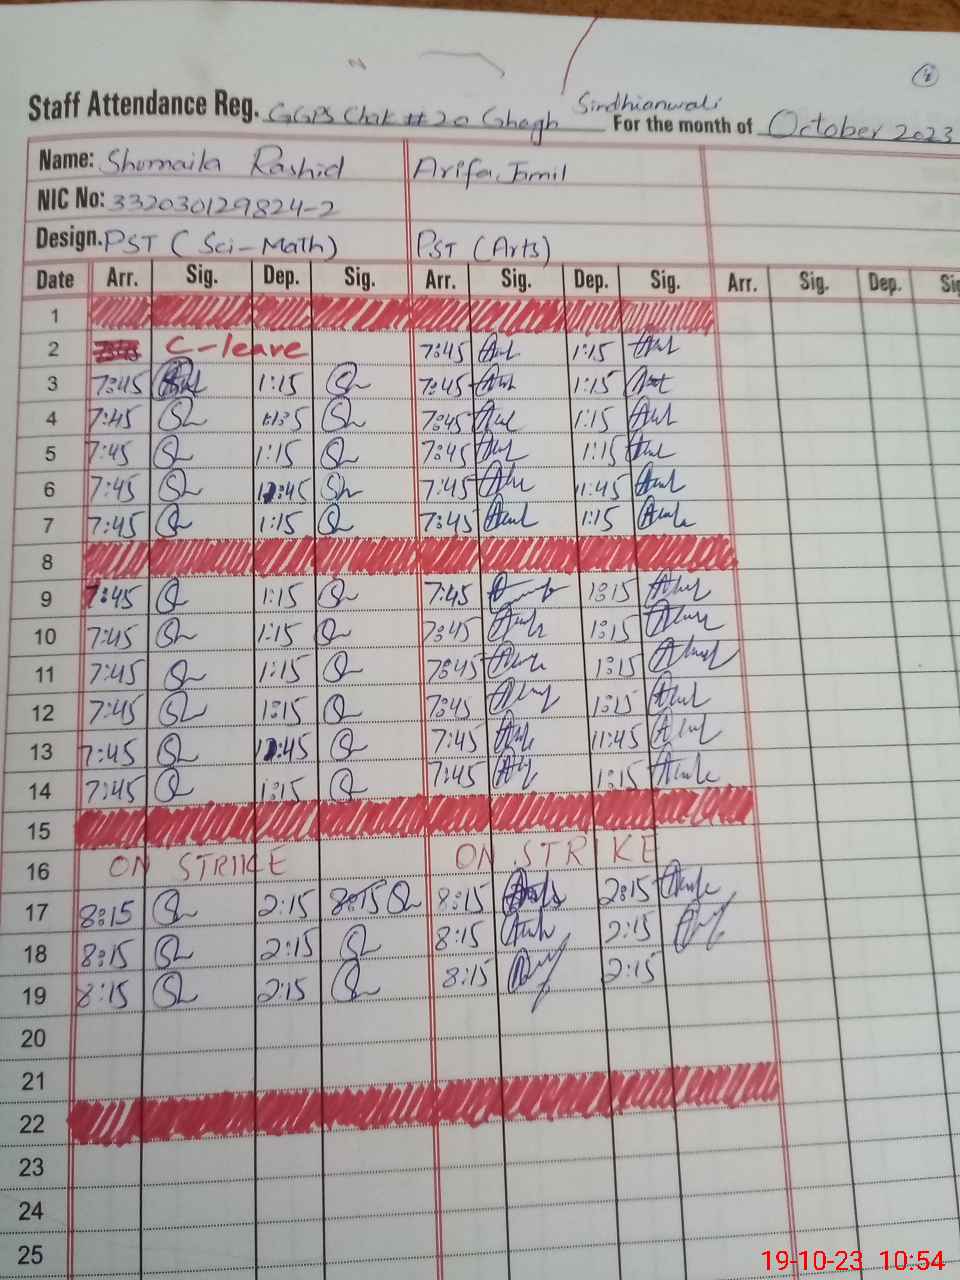 Staff Attendance Reg. GGPS Chak #20 Ghagh Sindhianwali For the month of October 2023
Name: Shumaila Rashid Arifa Jamil
NIC No: 332030129824-2
Design. PST (Sci-Math) PST (Arts)
Date Arr. Sig. Dep. Sig. Arr. Sig. Dep. Sig. Arr. Sig. Dep. Sig
1
2 C-leave 7:45 1:15
3 7:45 1:15 7:45 1:15
4 7:45 7:45 1:15
5 7:45 1:15 7:45 1:15
6 7:45 7:45 11:45
7 7:45 1:15 7:45 1:15
8
9 7:45 1:15 7:45 1:15
10 7:45 1:15 7:45 1:15
11 7:45 1:15 7:45 1:15
12 7:45 1:15 7:45 1:15
13 7:45 7:45 11:45
14 7:45 1:15 7:45 1:15
15
16 ON STRIKE ON STRIKE
17 8:15 2:15 8:15 8:15 2:15
18 8:15 2:15 8:15 2:15
19 8:15 2:15 8:15 2:15
20
21
22
23
24
25
19-10-23 10:54